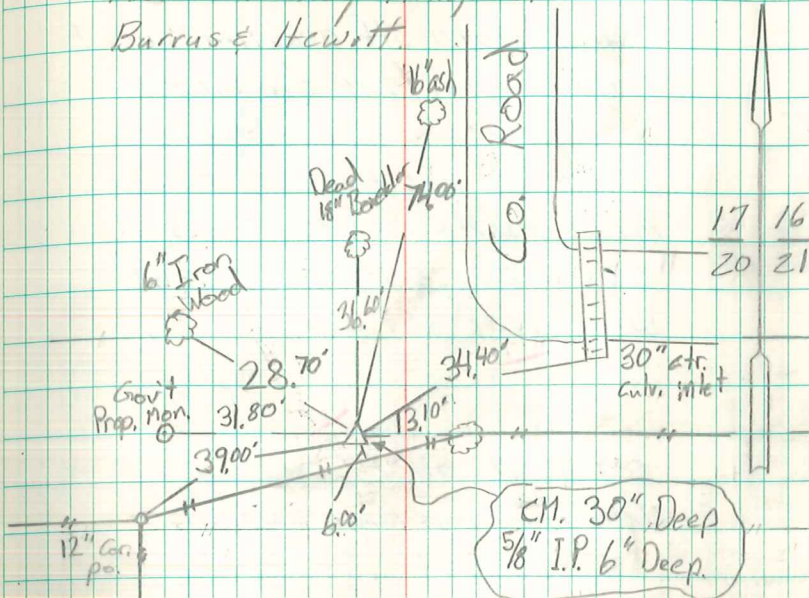 Burrus & Hewitt.
16" ash
Co. Road
Dead
18" Boxelder
74.00'
17 16
20 21
6" Iron
Wood
36.60'
28.70'
34.40'
30" ctr.
culv. inlet
Gov't
Prop. Mon.
31.80'
13.10'
39.00'
6.00'
CM. 30" Deep
5/8" I.P. 6" Deep.
12" Cor.
po.